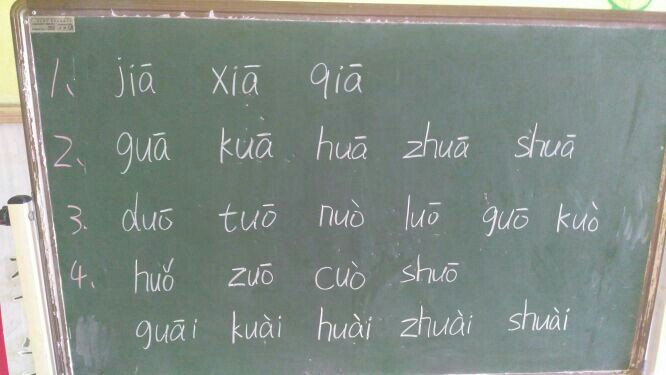 1、 jiā xiā qiā
2、 guā kuā huā zhuā shuā
3、 duō tuō nuò luō guō kuò
4、 huǒ zuō cuò shuō
guāi kuài huài zhuài shuài